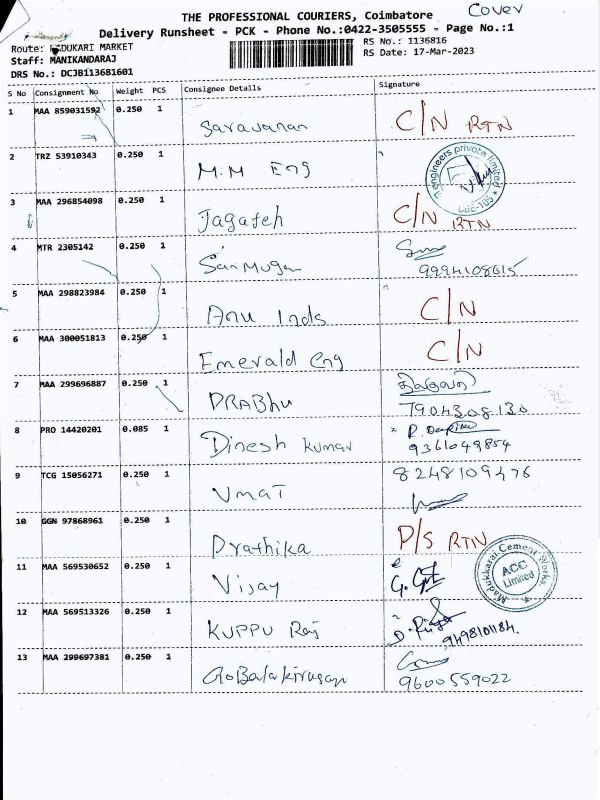 Cover
THE PROFESSIONAL COURIERS, Coimbatore
Delivery Runsheet - PCK - Phone No.:0422-3505555 - Page No.:1
Route: MARKET
RS No.: 1136816
Staff: MANIKANDARAJ
RS Date: 17-Mar-2023
DRS No.: DCJB113681601
S No Consignment No Weight PCS Consignee Details Signature
1 MAA 859031592 0.250 1 Saravanan C/N RTN
2 TRZ 53910343 0.250 1 M.M Eng
engineers private limited
CBE-105
3 MAA 296854098 0.250 1 Jagateh C/N RTN
4 MTR 2305142 0.250 1 Sanmugan
9994108615
5 MAA 298823984 0.250 1 Anu Inds C/N
6 MAA 300051813 0.250 1 Emerald Eng C/N
7 MAA 299696887 0.250 1 PRABhu
7904308130
8 PRO 14420201 0.085 1 Dinesh Kumar
9361049854
9 TCG 15056271 0.250 1 Umai 8248109476
10 GGN 97868961 0.250 1 Prathika P/S RTN
11 MAA 569530652 0.250 1 Vijay
Madukkarai Cement Works
ACC
Limited
12 MAA 569513326 0.250 1 KUPPU Raj
9498101184.
13 MAA 299697381 0.250 1 GoBalakirusan
9600559022